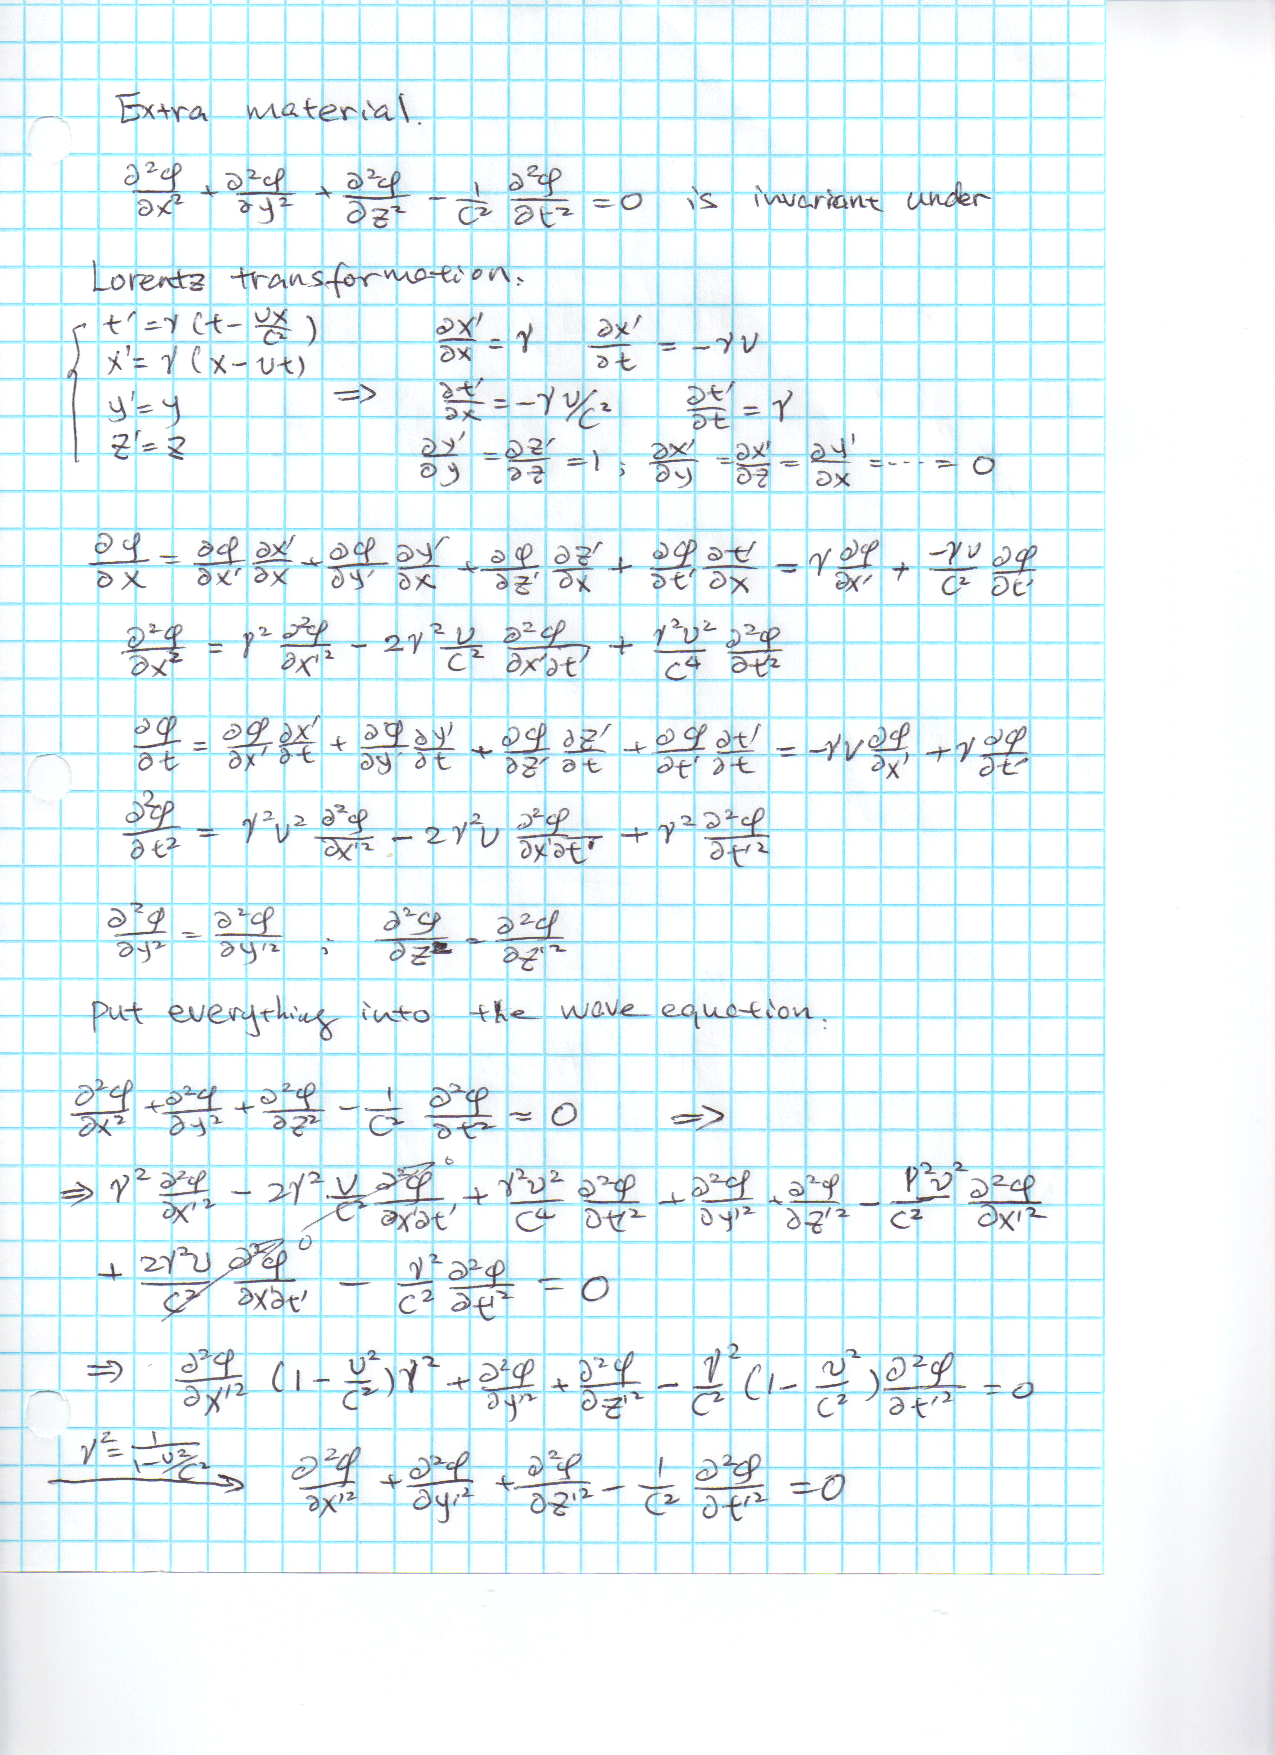 Extra material.
∂²φ/∂x² + ∂²φ/∂y² + ∂²φ/∂z² - 1/c² ∂²φ/∂t² = 0 is invariant under
Lorentz transformation.
t' = γ(t - υx/c²)
x' = γ(x - υt)
y' = y
z' = z
⇒
∂x'/∂x = γ ∂x'/∂t = -γυ
∂t'/∂x = -γυ/c² ∂t'/∂t = γ
∂y'/∂y = ∂z'/∂z = 1 ; ∂x'/∂y = ∂x'/∂z = ∂y'/∂x = ---- = 0
∂φ/∂x = ∂φ/∂x' ∂x'/∂x + ∂φ/∂y' ∂y'/∂x + ∂φ/∂z' ∂z'/∂x + ∂φ/∂t' ∂t'/∂x = γ ∂φ/∂x' + -γυ/c² ∂φ/∂t'
∂²φ/∂x² = γ² ∂²φ/∂x'² - 2γ² υ/c² ∂²φ/∂x'∂t' + γ²υ²/c⁴ ∂²φ/∂t'²
∂φ/∂t = ∂φ/∂x' ∂x'/∂t + ∂φ/∂y' ∂y'/∂t + ∂φ/∂z' ∂z'/∂t + ∂φ/∂t' ∂t'/∂t = -γυ ∂φ/∂x' + γ ∂φ/∂t'
∂²φ/∂t² = γ²υ² ∂²φ/∂x'² - 2γ²υ ∂²φ/∂x'∂t' + γ² ∂²φ/∂t'²
∂²φ/∂y² = ∂²φ/∂y'² ; ∂²φ/∂z² = ∂²φ/∂z'²
Put everything into the wave equation.
∂²φ/∂x² + ∂²φ/∂y² + ∂²φ/∂z² - 1/c² ∂²φ/∂t² = 0 ⇒
⇒ γ² ∂²φ/∂x'² - 2γ² υ/c² ∂²φ/∂x'∂t' 0 + γ²υ²/c⁴ ∂²φ/∂t'² + ∂²φ/∂y'² + ∂²φ/∂z'² - γ²υ²/c² ∂²φ/∂x'²
+ 2γ²υ/c² ∂²φ/∂x'∂t' 0 - γ²/c² ∂²φ/∂t'² = 0
⇒ ∂²φ/∂x'² (1 - υ²/c²)γ² + ∂²φ/∂y'² + ∂²φ/∂z'² - γ²/c² (1 - υ²/c²) ∂²φ/∂t'² = 0
γ² = 1/(1-υ²/c²) → ∂²φ/∂x'² + ∂²φ/∂y'² + ∂²φ/∂z'² - 1/c² ∂²φ/∂t'² = 0